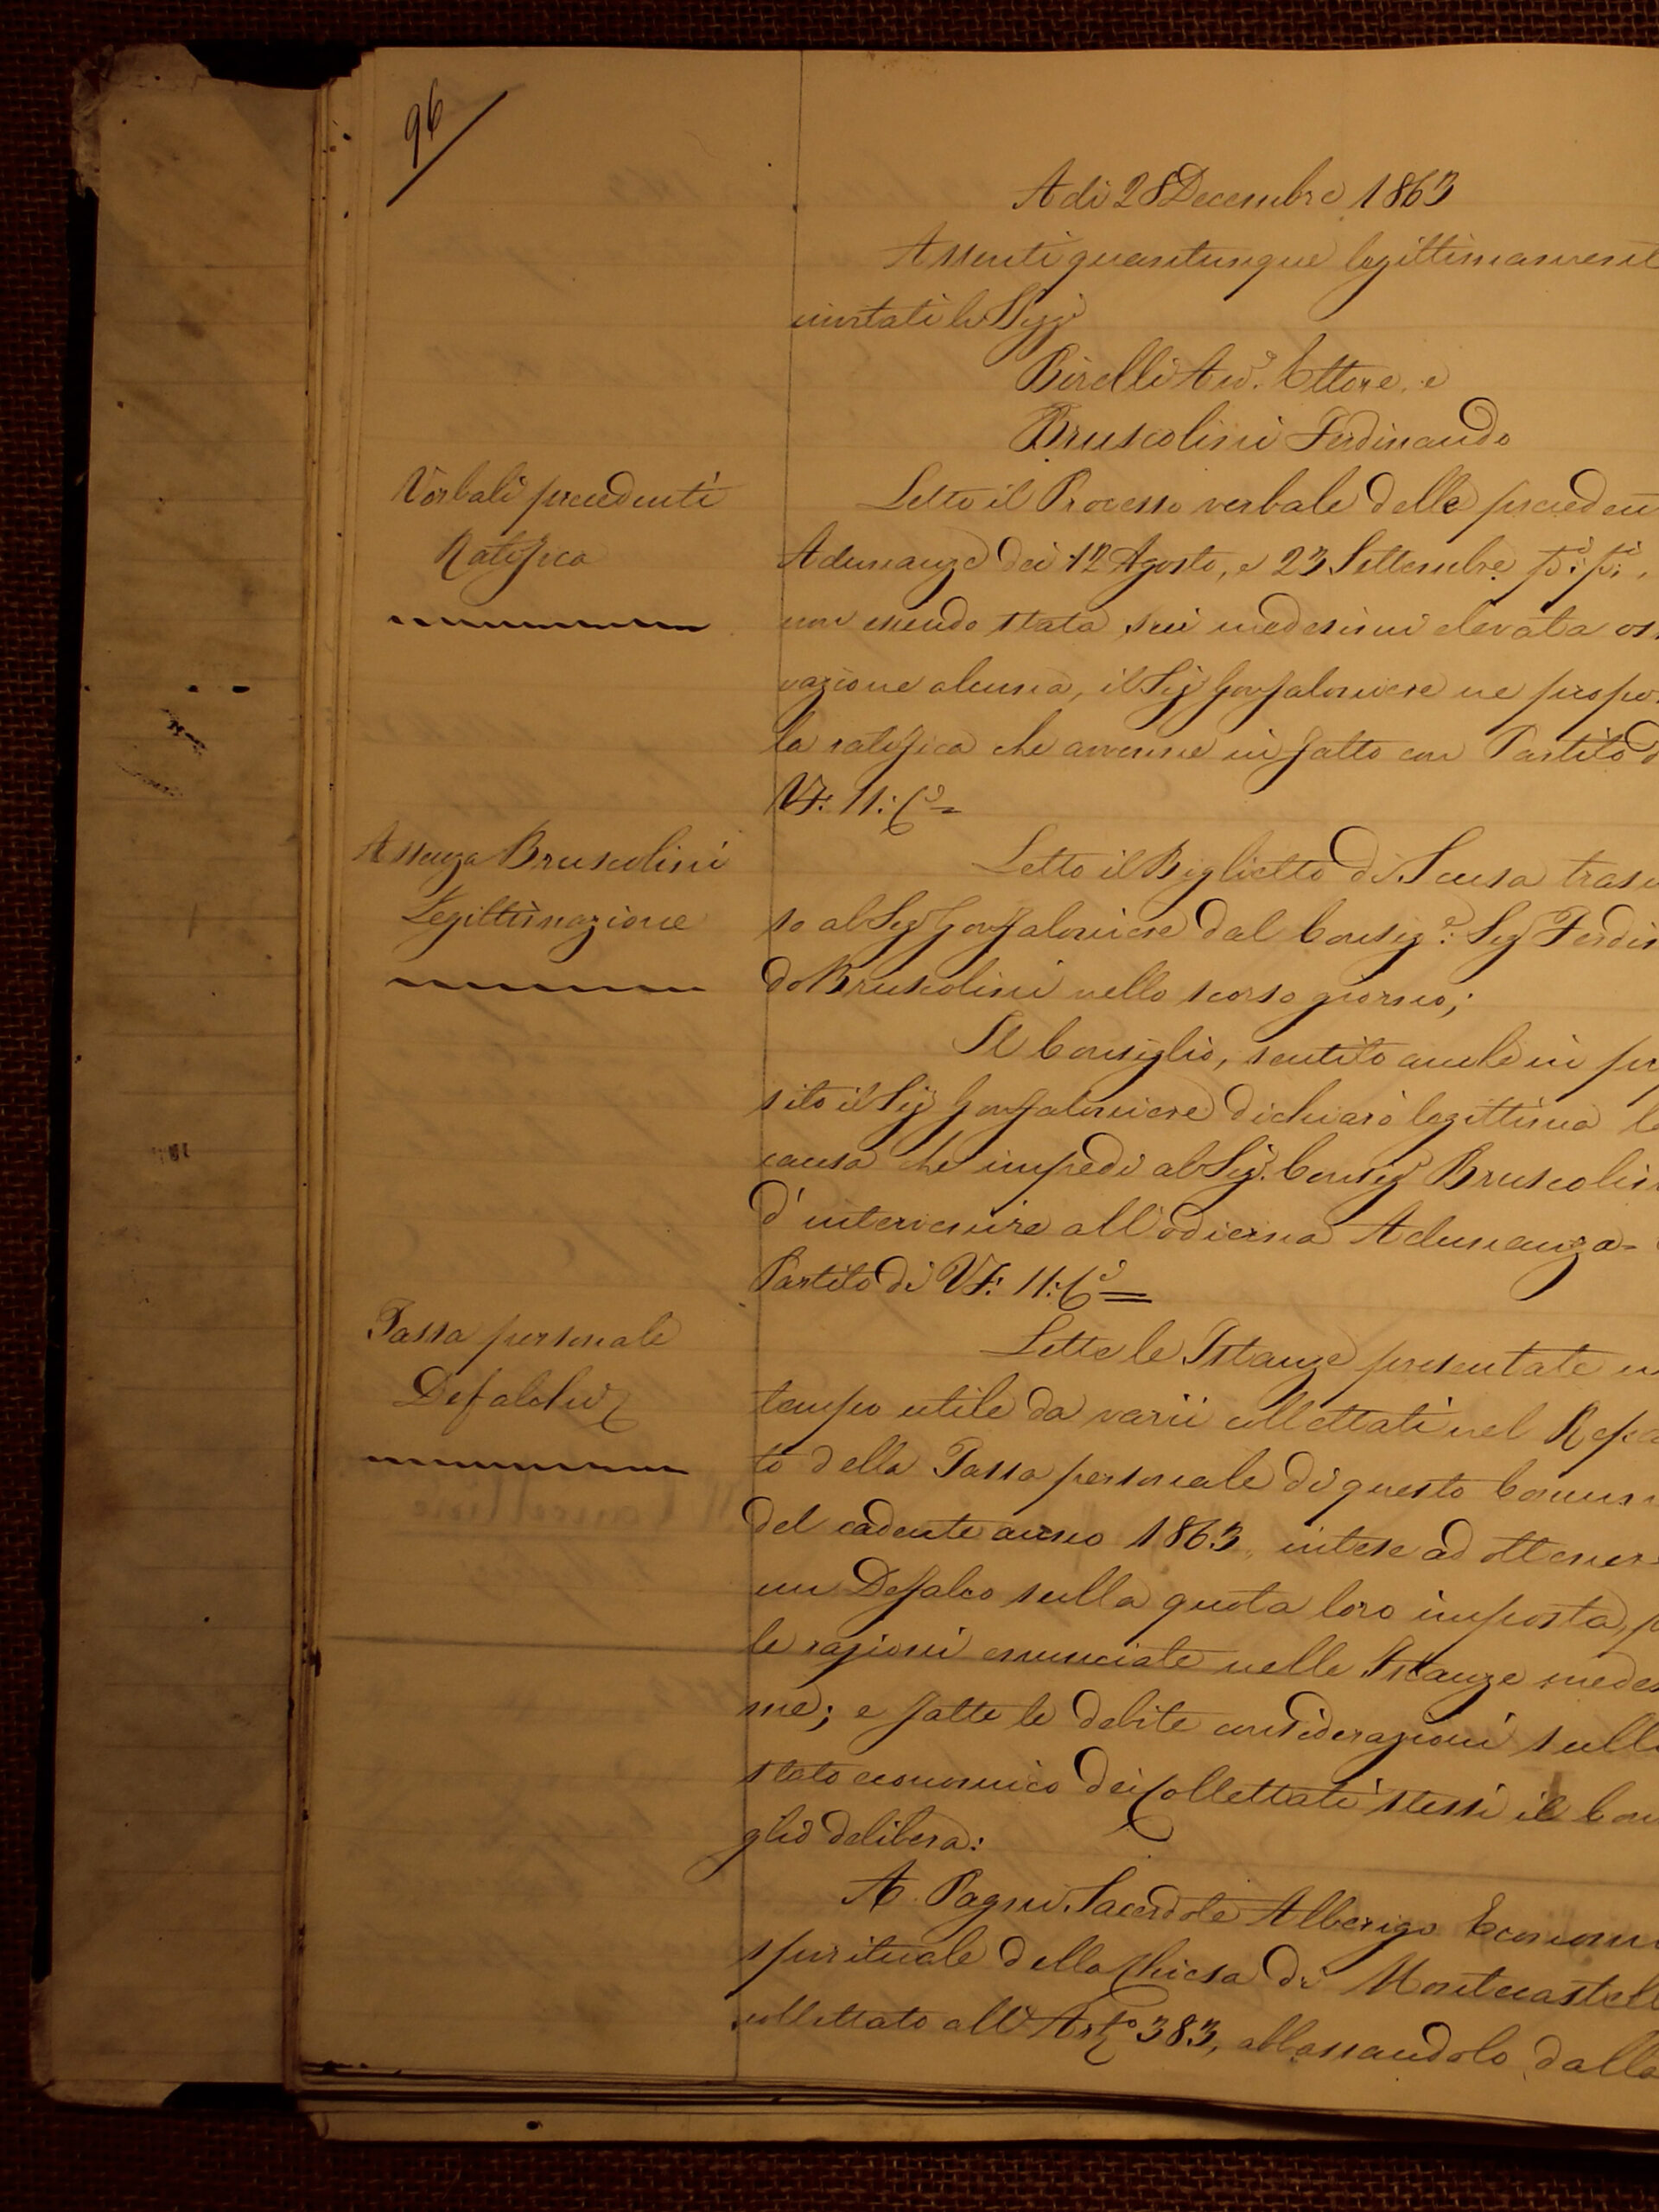 96
A di 28 Decembre 1863
Assenti quantunque legittimament
invitati li Sigg.i
Birelli Avv.o Ettore, e
Bruscolini Ferdinando
Verbali precedenti
Ratifica
Letto il Processo verbale delle preceden
Adunanze dei 12 Agosto, e 23 Settembre p.i p.i,
non essendo stata sui medesimi elevata os
vazione alcuna, il Sig. Gonfaloniere ne propo
la ratifica che avvenne in fatto con Partito d
VF: 11: C.i =
Assenza Bruscolini
Legittimazione
Letto il Biglietto di Scusa tras
so al Sig. Gonfaloniere dal Consig.e: Sig. Ferdin
do Bruscolini nello scorso giorno;
Il Consiglio, sentito anche in pr
sito il Sig. Gonfaloniere dichiarò legittima la
causa che impedì al Sig. Consig. Bruscolin
d'intervenire all'odierna Adunanza =
Partito di VF: 11: C.i =
Tassa personale
Defalchi
Lette le Istanze presentate in
tempo utile da varii collettati nel Repar
to della Tassa personale di questo Comun
del cadente anno 1863, intese ad ottener
un Defalco sulla quota loro imposta, p
le ragioni enunciate nelle Istanze medes
me; e fatte le debite considerazioni sullo
stato economico dei Collettati stessi il Con
glio delibera:
A Pagni Sacerdote Alberigo Econom
spirituale della Chiesa di Montecastell
collettato all'Art.o 383, abbassandolo dalla